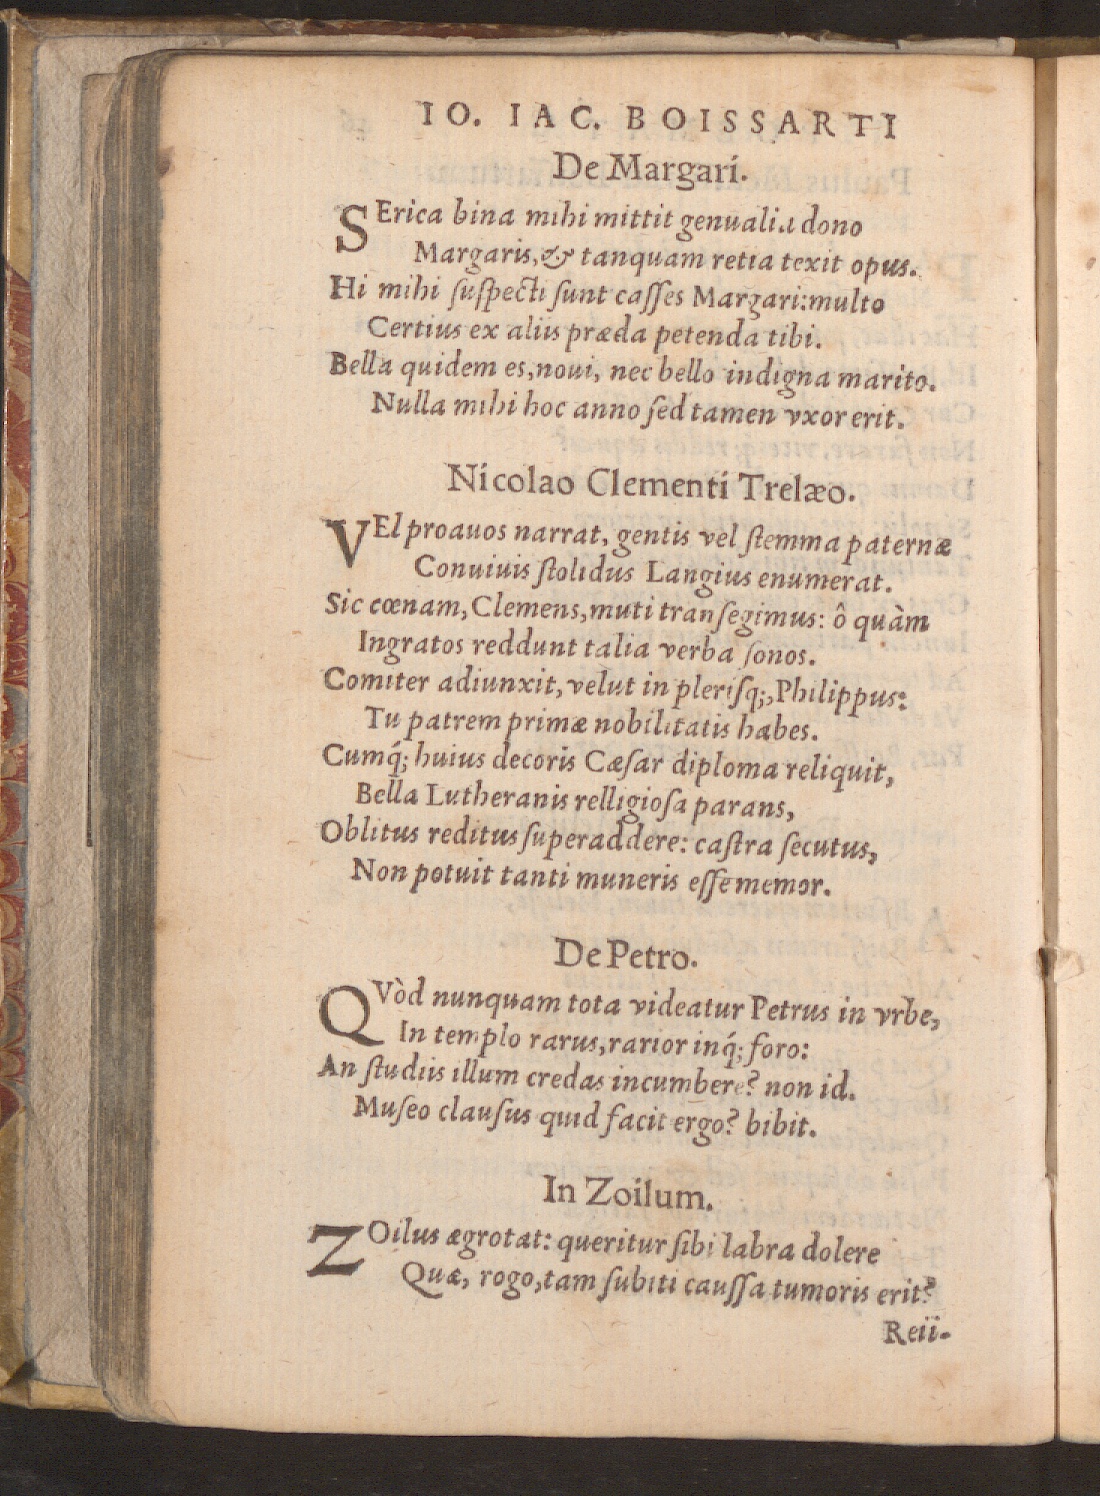 IO. IAC. BOISSARTI
De Margari.
SErica bina mihi mittit genualia dono
Margaris, & tanquam retia texit opus.
Hi mihi ſuſpecti ſunt caſſes Margari: multo
Certius ex aliis præda petenda tibi.
Bella quidem es, noui, nec bello indigna marito.
Nulla mihi hoc anno ſed tamen vxor erit.
Nicolao Clementi Trelæo.
VEl proauos narrat, gentis vel ſtemma paternæ
Conuiuis ſtolidus Langius enumerat.
Sic cœnam, Clemens, muti tranſegimus: ô quàm
Ingratos reddunt talia verba ſonos.
Comiter adiunxit, velut in pleriſq;, Philippus:
Tu patrem primæ nobilitatis habes.
Cumq́; huius decoris Cæſar diploma reliquit,
Bella Lutheranis relligioſa parans,
Oblitus reditus ſuperaddere: caſtra ſecutus,
Non potuit tanti muneris eſſe memor.
De Petro.
QVòd nunquam tota videatur Petrus in vrbe,
In templo rarus, rarior inq́; foro:
An ſtudiis illum credas incumbere? non id.
Muſeo clauſus quid facit ergo? bibit.
In Zoilum.
ZOilus ægrotat: queritur ſibi labra dolere
Quæ, rogo, tam ſubiti cauſſa tumoris erit?
Reii-